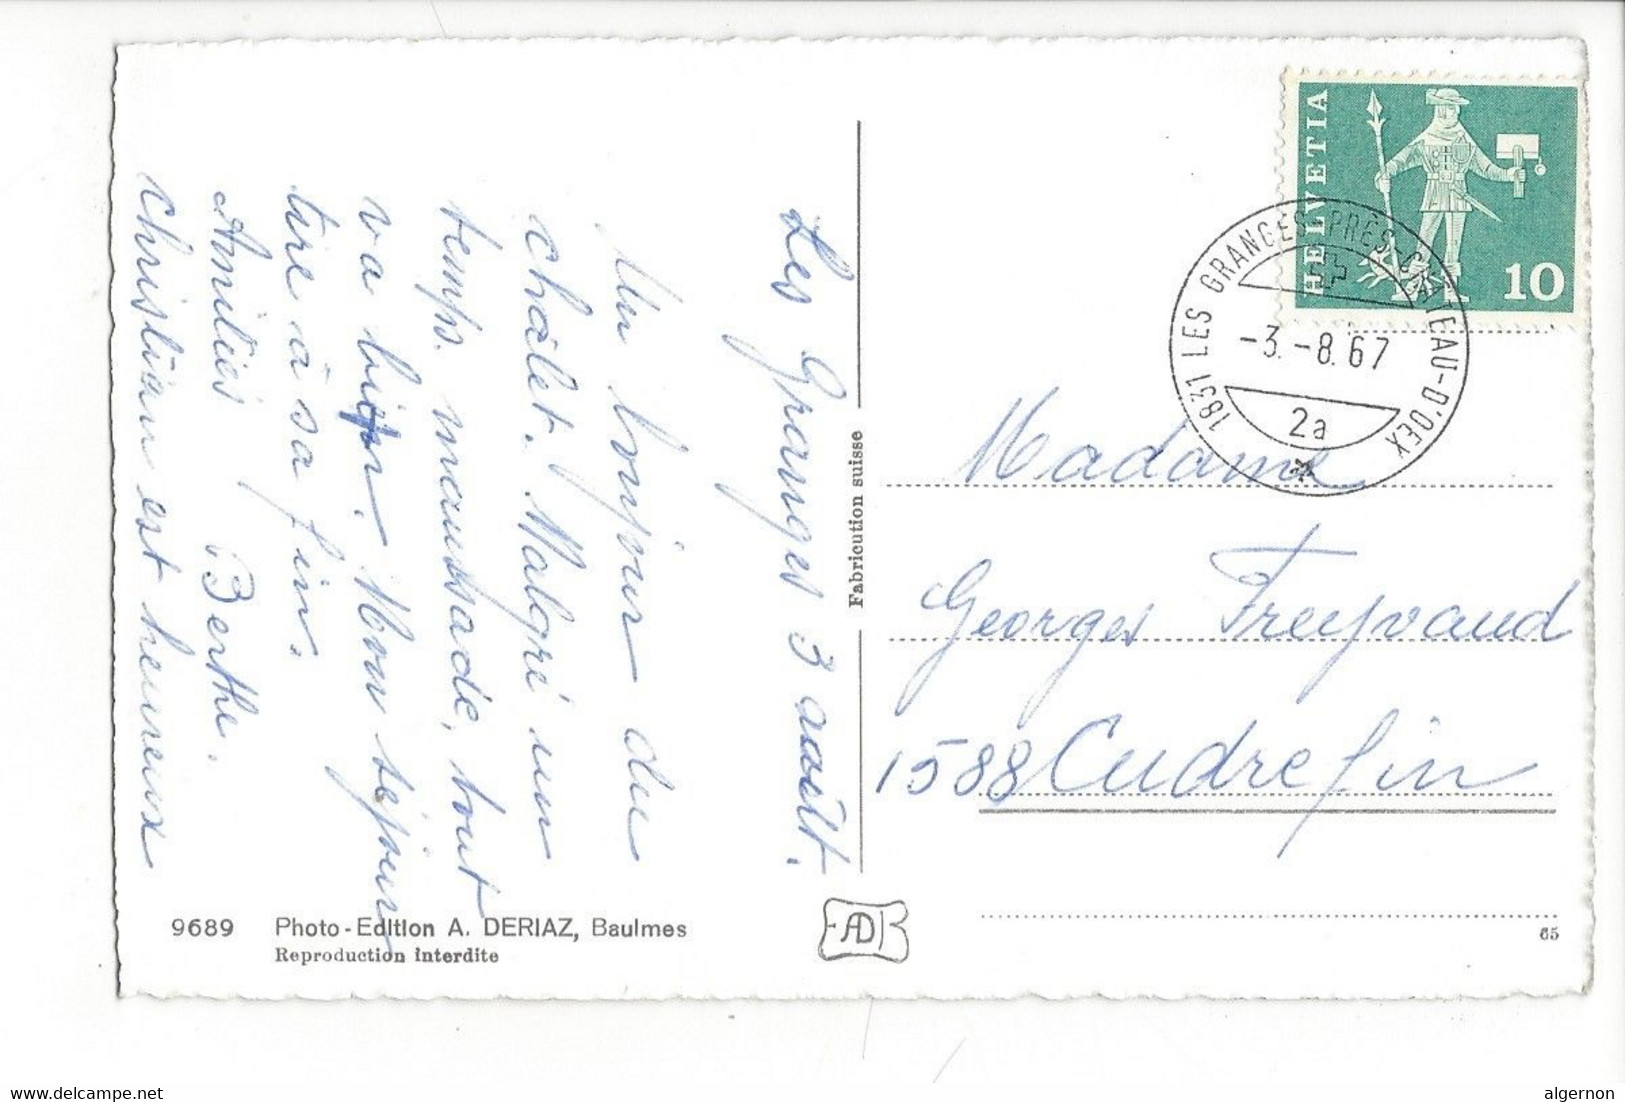 Les Granges 3 août.
Un bonjour du
châlet. Malgré un
temps maussade, tout
va bien. Mon séjour
tire à sa fin.
Amitiés Berthe.
Christian est heureux
9689 Photo-Edition A. DERIAZ, Baulmes
Reproduction interdite
Fabrication suisse
HELVETIA
10
1831 LES GRANGES-PRÈS-CHÂTEAU-D'OEX
-3.-8.67
2a
Madame
Georges Freyvaud
1588 Cudrefin
65
delcampe.net
algernon